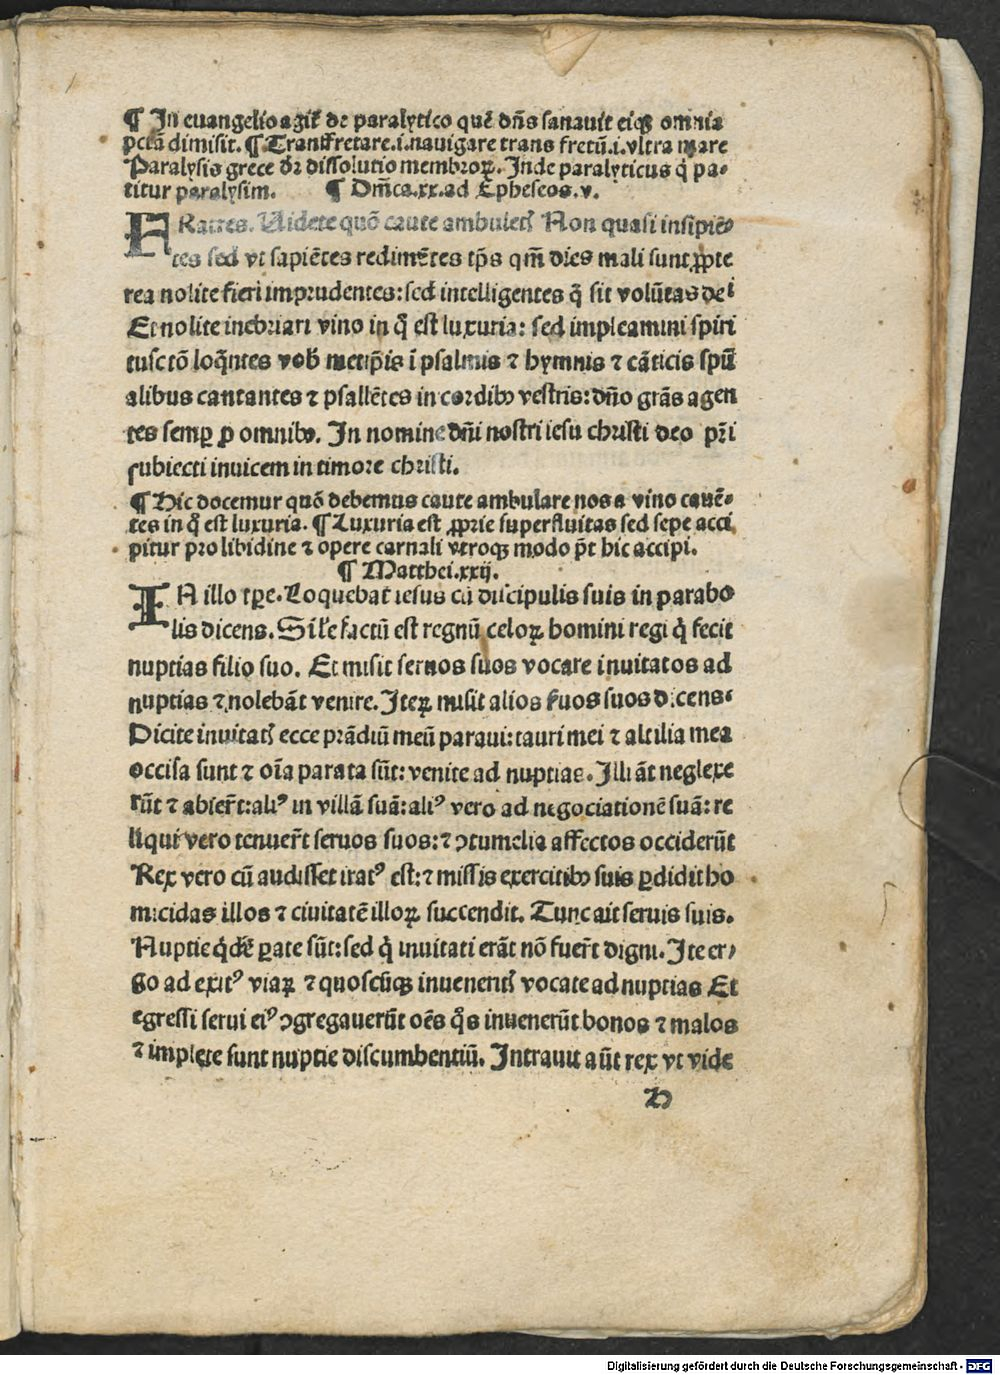 ¶ In euangelio agit̄ de paralytico quē dn̄s sanauit eiqꝫ omnia
pctā dimisit. ¶ Transfretare.i.nauigare trans fretū.i.vltra mare
Paralysis grece dr̄ dissolutio membroꝝ. Inde paralyticus q̇ pa⸗
titur paralysim. ¶ Dn̄ica.xx.ad Epheseos.v.
FRatres. Uidete quō caute ambuletꝭ Non quasi insipiē⸗
tes sed vt sapiētes redimētes tp̄s qm̄ dies mali sunt ꝓpte
rea nolite fieri imprudentes:sed intelligentes q̄ sit volūtas dei
Et nolite inebriari vino in q̄ est luxuria: sed impleamini spiri
tusctō loq̄ntes vob̄ metip̄is ī psalmis ⁊ hymnis ⁊ cāticis spū
alibus cantantes ⁊ psallētes in cordibꝰ vestris:dn̄o grās agen
tes semꝑ ꝓ omnibꝰ. In nomine dn̄i nostri iesu christi deo pr̄i
subiecti inuicem in timore christi.
¶ Hic docemur quō debemus caute ambulare nos a vino cauē⸗
tes in q̄ est luxuria. ¶ Luxuria est ꝓprie superfluitas sed sepe acci
pitur pro libidine ⁊ opere carnali vtroqꝫ modo p̄t hic accipi.
¶ Matthei.xxij.
IN illo tꝑe. Loquebat̄ iesus cū discipulis suis in parabo
lis dicens. Sil̄e factū est regnū celoꝝ homini regi q̇ fecit
nuptias filio suo. Et misit seruos suos vocare inuitatos ad
nuptias ⁊ nolebāt venire. Iteꝝ misit alios s̄uos suos dicens⸗
Dicite inuitatꝭ ecce prādiū meū paraui:tauri mei ⁊ altilia mea
occisa sunt ⁊ oīa parata sūt: venite ad nuptias. Illi āt neglexe
rūt ⁊ abier̄t:aliꝰ in villā suā: aliꝰ vero ad negociationē suā: re
liqui vero tenuer̄t seruos suos: ⁊ ꝯtumelia affectos occiderūt
Rex vero cū audisset iratꝰ est: ⁊ missis exercitibꝰ suis ꝑdidit ho
micidas illos ⁊ ciuitatē illoꝝ succendit. Tunc ait seruis suis.
Nuptie q̇dē ꝑate sūt: sed q̇ inuitati erāt nō fuer̄t digni. Ite er⸗
go ad exitꝰ viaꝝ ⁊ quoscūqꝫ inueneritꝭ vocate ad nuptias Et
egressi serui eiꝰ ꝯgregauerūt oēs q̄s inuenerūt bonos ⁊ malos
⁊ implete sunt nuptie discumbentiū. Intrauit aūt rex vt vide
H
Digitalisierung gefördert durch die Deutsche Forschungsgemeinschaft - DFG